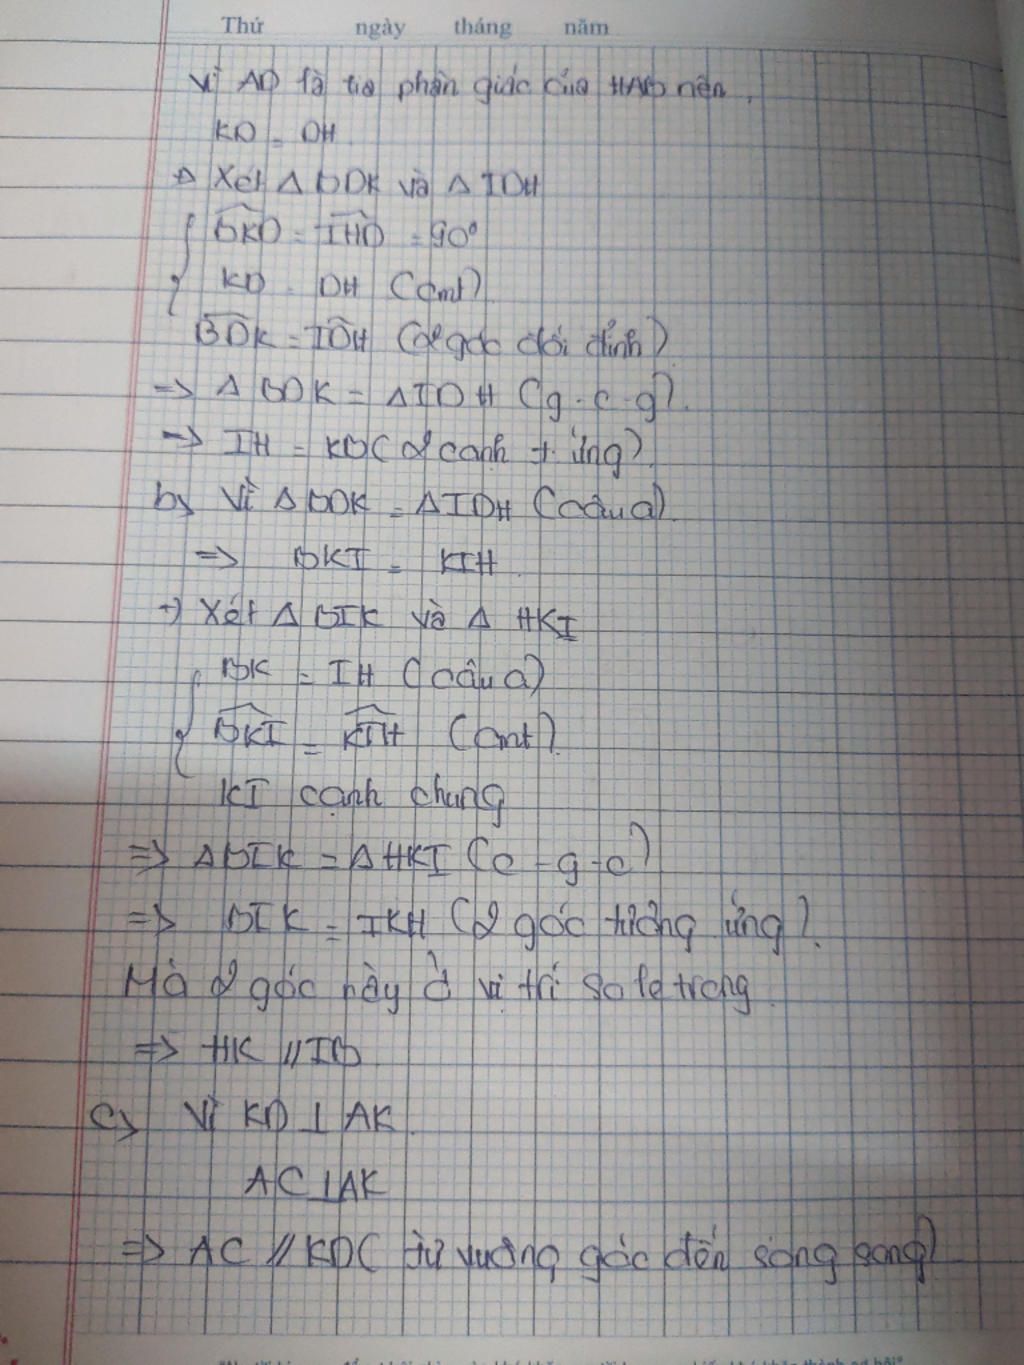 Thứ ngày tháng năm
Vì AD là tia phân giác của HAB nên
KD = DH
Xét Δ BDK và Δ IDH
BKD = IHD = 90°
KD = DH (cmt)
BDK = IDH (2 góc đối đỉnh)
=> Δ BDK = Δ IDH (g-c-g).
=> IH = KB (2 cạnh t. ứng)
b) Vì Δ BDK = Δ IDH (câu a)
=> BKI = KIH
Xét Δ BIK và Δ HKI
BK = IH (câu a)
BKI = KIH (cmt).
KI cạnh chung
=> Δ BIK = Δ HKI (c-g-c)
=> BIK = IKH (2 góc tương ứng).
Mà 2 góc này ở vị trí so le trong
=> HK // IB
c) Vì KD ⊥ AK
AC ⊥ AK
=> AC // KD ( từ vuông góc đến song song)